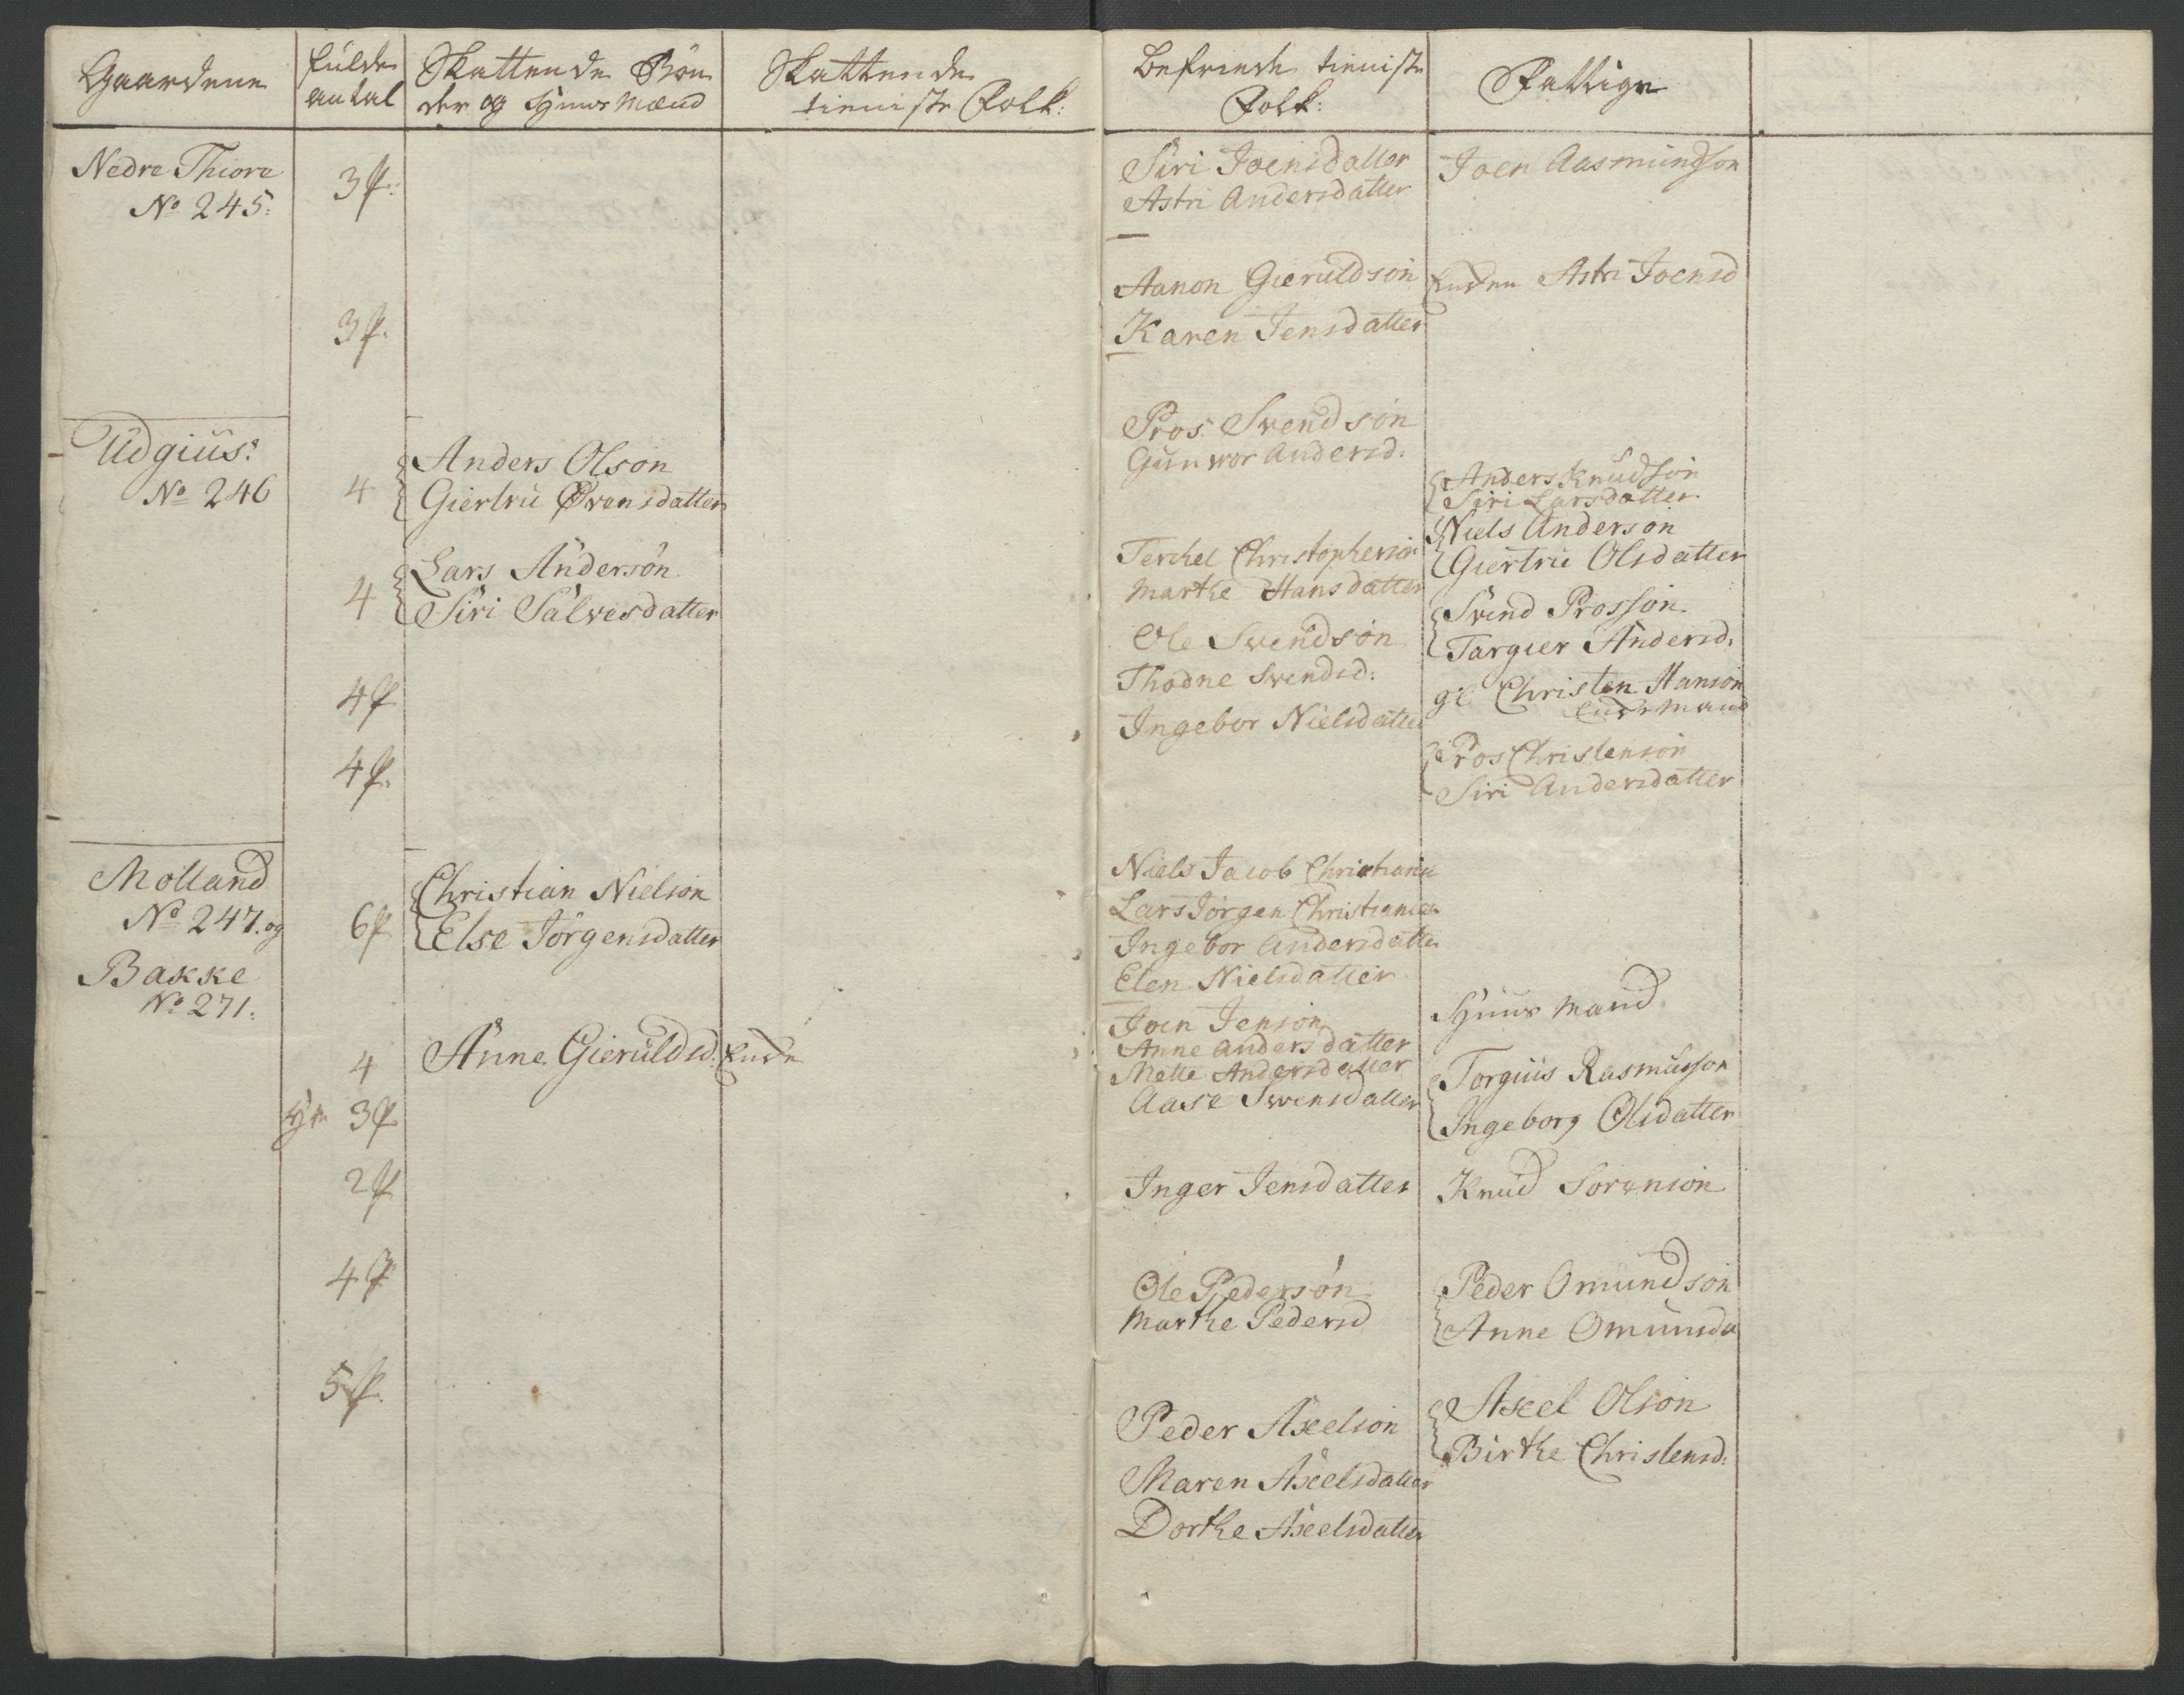 Gaardene
fulde
antal
Skattende Bön
der og Huus Mænd
Skattende
tieniste Folk:
Befriede tieniste
Folk:
Fattige
Nedre Thiore
No 245:
3 f:
Siri Joensdatter
Astri Andersdatter
Joen Aasmundson
3 f.
Aanon Gieruldsøn
Karen Jensdatter
Enken Astri Joensd
Udgiüs:
No 246
4
Anders Olsøn
Giertru Övensdatter
Pros Svendsøn
Gunvor Andersd.
Anders Knudsøn
Siri Larsdatter
4
Lars Andersøn
Siri Salvesdatter
Terchel Christophersøn
Marthe Hansdatter
Niels Andersøn
Giertru Olsdatter
Ole Svendsøn
Thodne Svendsd:
Svend Prossøn
Targier Andersd.
4 f
Ingebor Nielsdatter
gl Christen Hansøn
Enkemand
4 f.
Pros Christensøn
Siri Andersdatter
Molland
No 247. og
Bakke
No 271.
6 f
Christian Nielsøn
Else Jörgensdatter
Niels Jacob Christians
Lars Jörgen Christians
Ingebor Andersdatter
Elen Nielsdatter
4
Anne Gieruldsd. Enke
Joen Jensøn
Anne Andersdatter
Mette Andersdatter
Aase Svensdatter
Huus Mand
3 f
Torgius Rasmusson
Ingeborg Olsdatter
2 f
Inger Jensdatter
Knud Sorensøn
4 f
Ole Pedersøn
Marthe Pedersd
Peder Omundsøn
Anne Omunsda
5 f.
Peder Axelsøn
Maren Axelsdatter
Dorthe Axelsdatter
Axel Olsøn
Birthe Christensd: